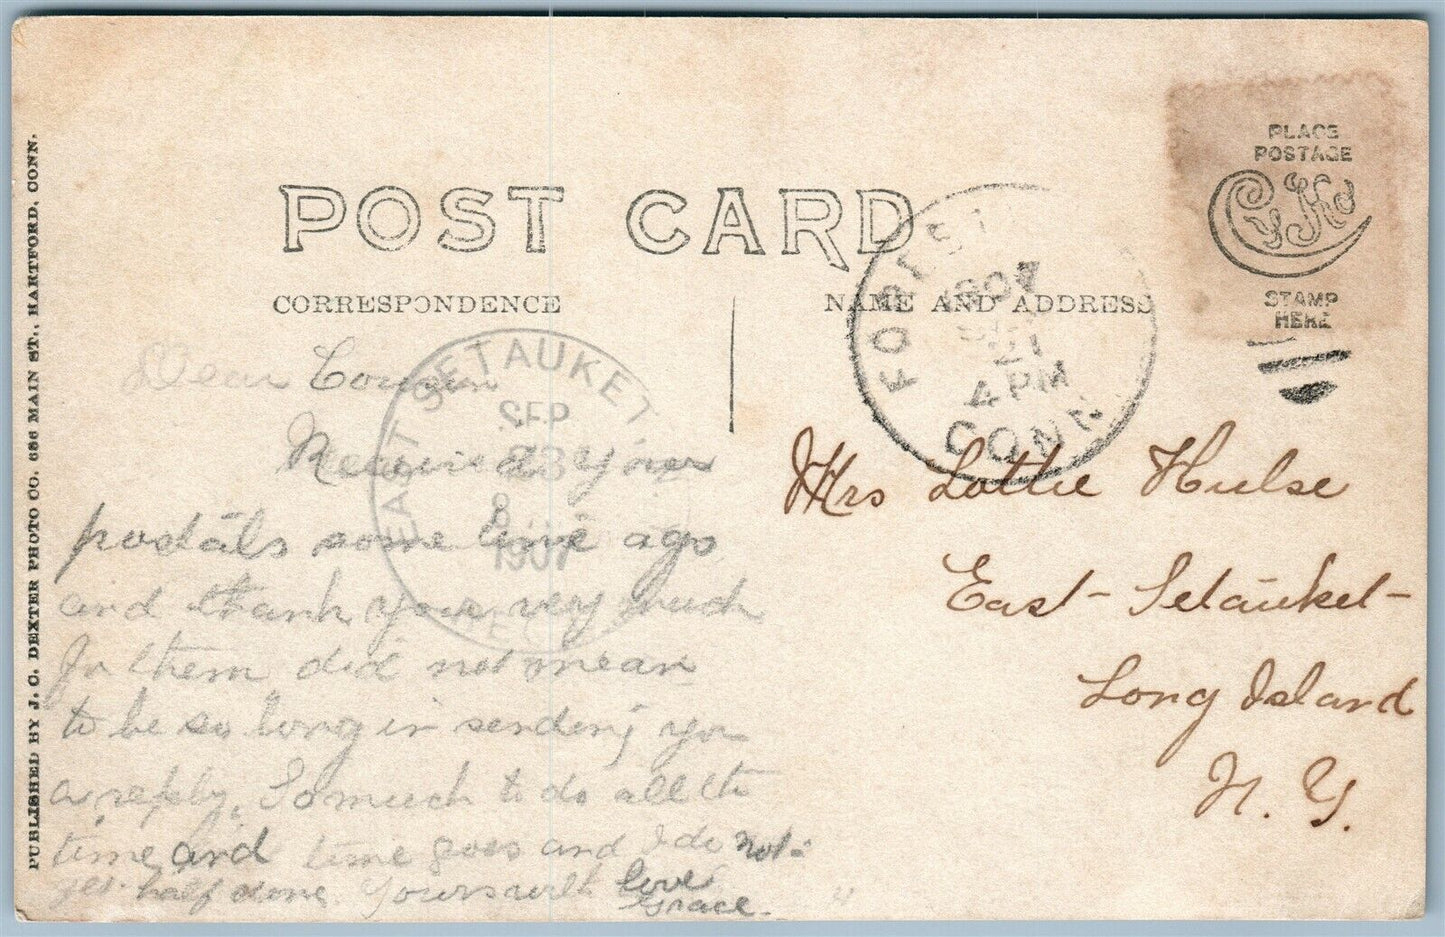 POST CARD
CORRESPONDENCE
NAME AND ADDRESS
PLACE
POSTAGE
CyKo
STAMP
HERE
PUBLISHED BY J. C. DEXTER PHOTO CO. 686 MAIN ST., HARTFORD, CONN.
1907
21
4 PM
CONN.
EAST SETAUKET
SEP
23
8
1907
REC'D
Dear Cousin
Received your
postals some time ago
and thank you very much
for them did not mean
to be so long in sending you
a reply. So much to do all the
time and time goes and I do not
get half done. Yours with love
Grace.
Mrs Lottie Hulse
East Setauket
Long Island
N. Y.